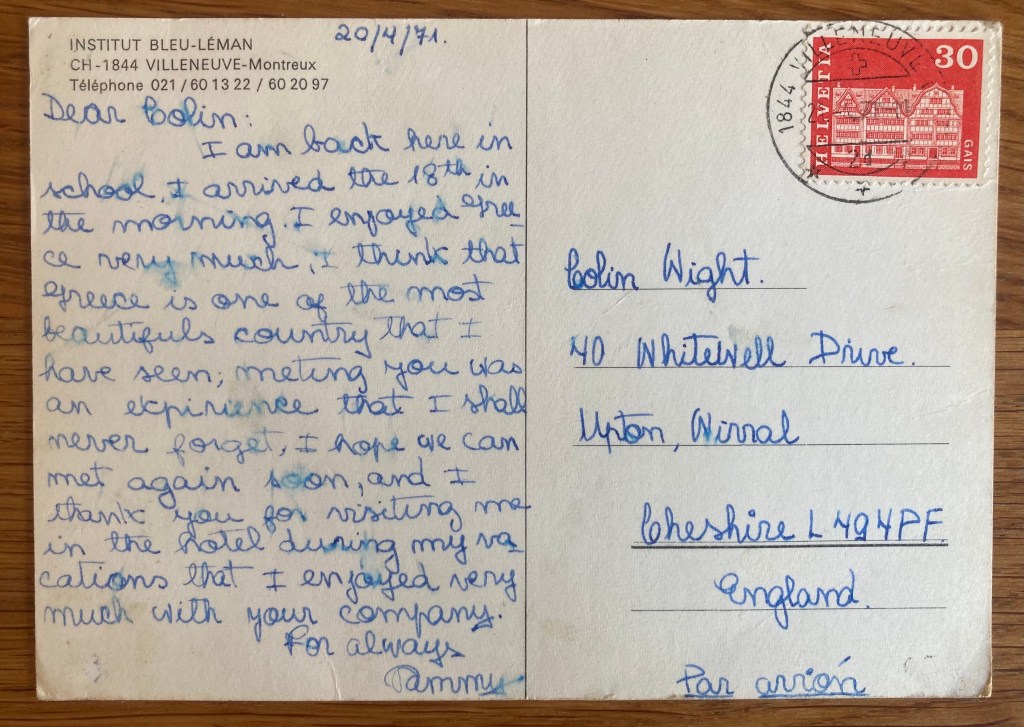 INSTITUT BLEU-LÉMAN
CH-1844 VILLENEUVE-Montreux
Téléphone 021/60 13 22 / 60 20 97
20/4/71.
Dear Colin:
I am back here in
school, I arrived the 18th in
the morning. I enjoyed Gree-
ce very much, I think that
Greece is one of the most
beautifuls country that I
have seen; meting you was
an expirience that I shall
never forget, I hope we can
met again soon, and I
thank you for visiting me
in the hotel during my va-
cations that I enjoyed very
much with your company.
For always
Pammy
1844 VILLENEUVE
HELVETIA
30
GAIS
Colin Wight.
40 Whitewell Drive.
Upton, Wirral
Cheshire L494PF.
England.
Par avión